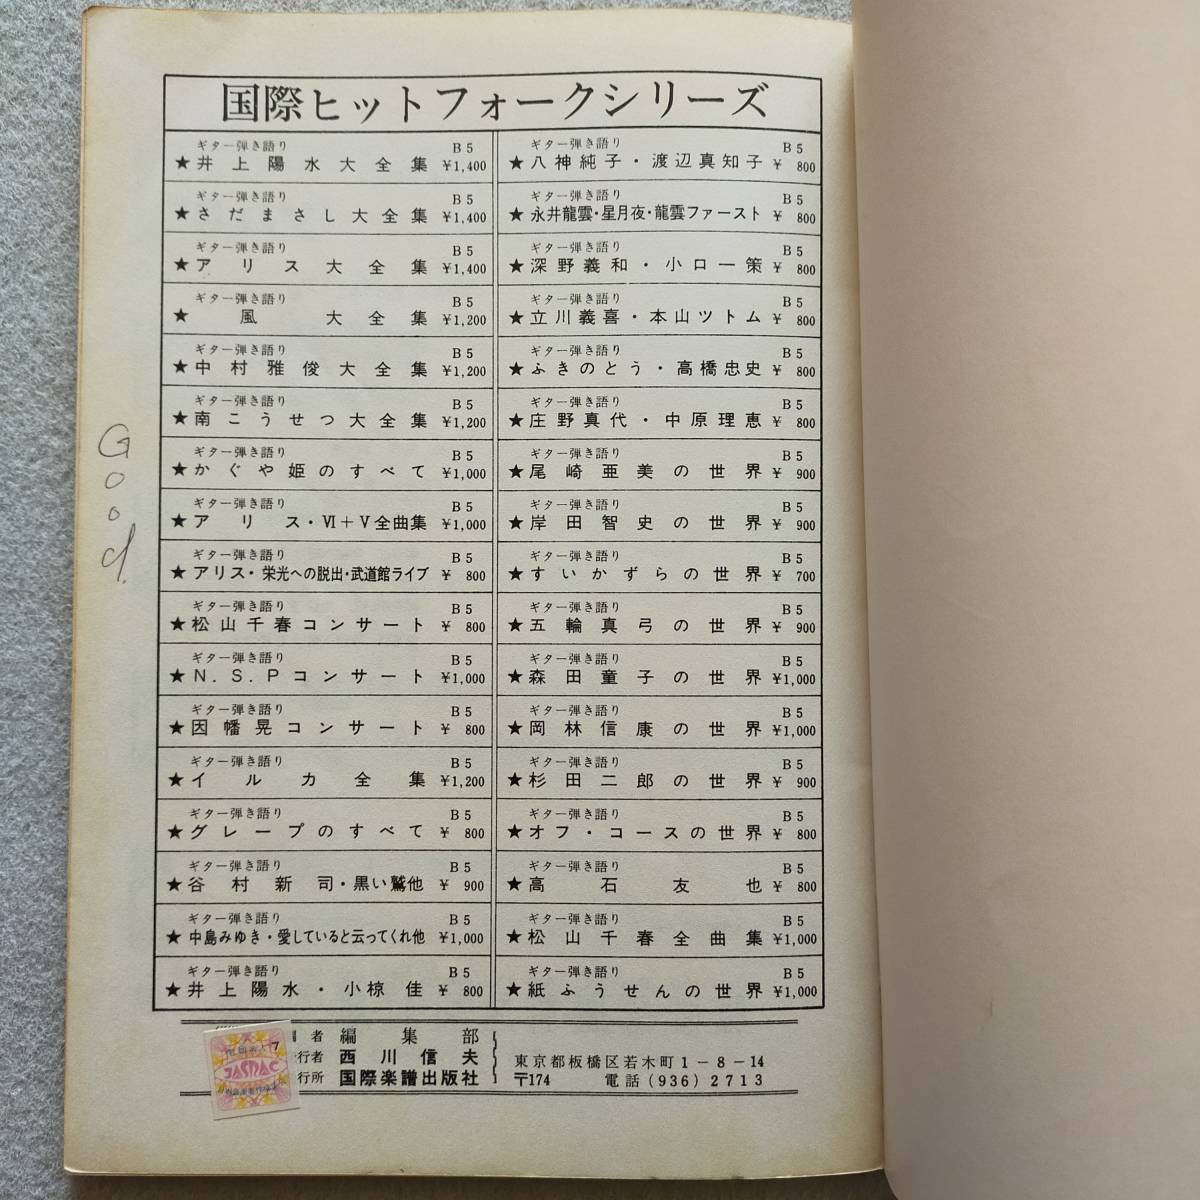 国際ヒットフォークシリーズ
ギター弾き語り B5
★井上陽水大全集 ¥1,400
ギター弾き語り B5
★さだまさし大全集 ¥1,400
ギター弾き語り B5
★アリス大全集 ¥1,400
ギター弾き語り B5
★風大全集 ¥1,200
ギター弾き語り B5
★中村雅俊大全集 ¥1,200
ギター弾き語り B5
★南こうせつ大全集 ¥1,200
ギター弾き語り B5
★かぐや姫のすべて ¥1,000
ギター弾き語り B5
★アリス・Ⅵ+Ⅴ全曲集 ¥1,000
ギター弾き語り B5
★アリス・栄光への脱出・武道館ライブ ¥800
ギター弾き語り B5
★松山千春コンサート ¥800
ギター弾き語り B5
★N.S.Pコンサート ¥1,000
ギター弾き語り B5
★因幡晃コンサート ¥800
ギター弾き語り B5
★イルカ全集 ¥1,200
ギター弾き語り B5
★グレープのすべて ¥800
ギター弾き語り B5
★谷村新司・黒い鷲他 ¥900
ギター弾き語り B5
★中島みゆき・愛していると云ってくれ他 ¥1,000
ギター弾き語り B5
★井上陽水・小椋佳 ¥800
ギター弾き語り B5
★八神純子・渡辺真知子 ¥800
ギター弾き語り B5
★永井龍雲・星月夜・龍雲ファースト ¥800
ギター弾き語り B5
★深野義和・小口一策 ¥800
ギター弾き語り B5
★立川義喜・本山ツトム ¥800
ギター弾き語り B5
★ふきのとう・高橋忠史 ¥800
ギター弾き語り B5
★庄野真代・中原理恵 ¥800
ギター弾き語り B5
★尾崎亜美の世界 ¥900
ギター弾き語り B5
★岸田智史の世界 ¥900
ギター弾き語り B5
★すいかずらの世界 ¥700
ギター弾き語り B5
★五輪真弓の世界 ¥900
ギター弾き語り B5
★森田童子の世界 ¥1,000
ギター弾き語り B5
★岡林信康の世界 ¥1,000
ギター弾き語り B5
★杉田二郎の世界 ¥900
ギター弾き語り B5
★オフ・コースの世界 ¥800
ギター弾き語り B5
★高石友也 ¥800
ギター弾き語り B5
★松山千春全曲集 ¥1,000
ギター弾き語り B5
★紙ふうせんの世界 ¥1,000
Good.
者 編集部
行者 西川信夫
行所 国際楽譜出版社
東京都板橋区若木町1-8-14
〒174 電話(936)2713
7
JASRAC